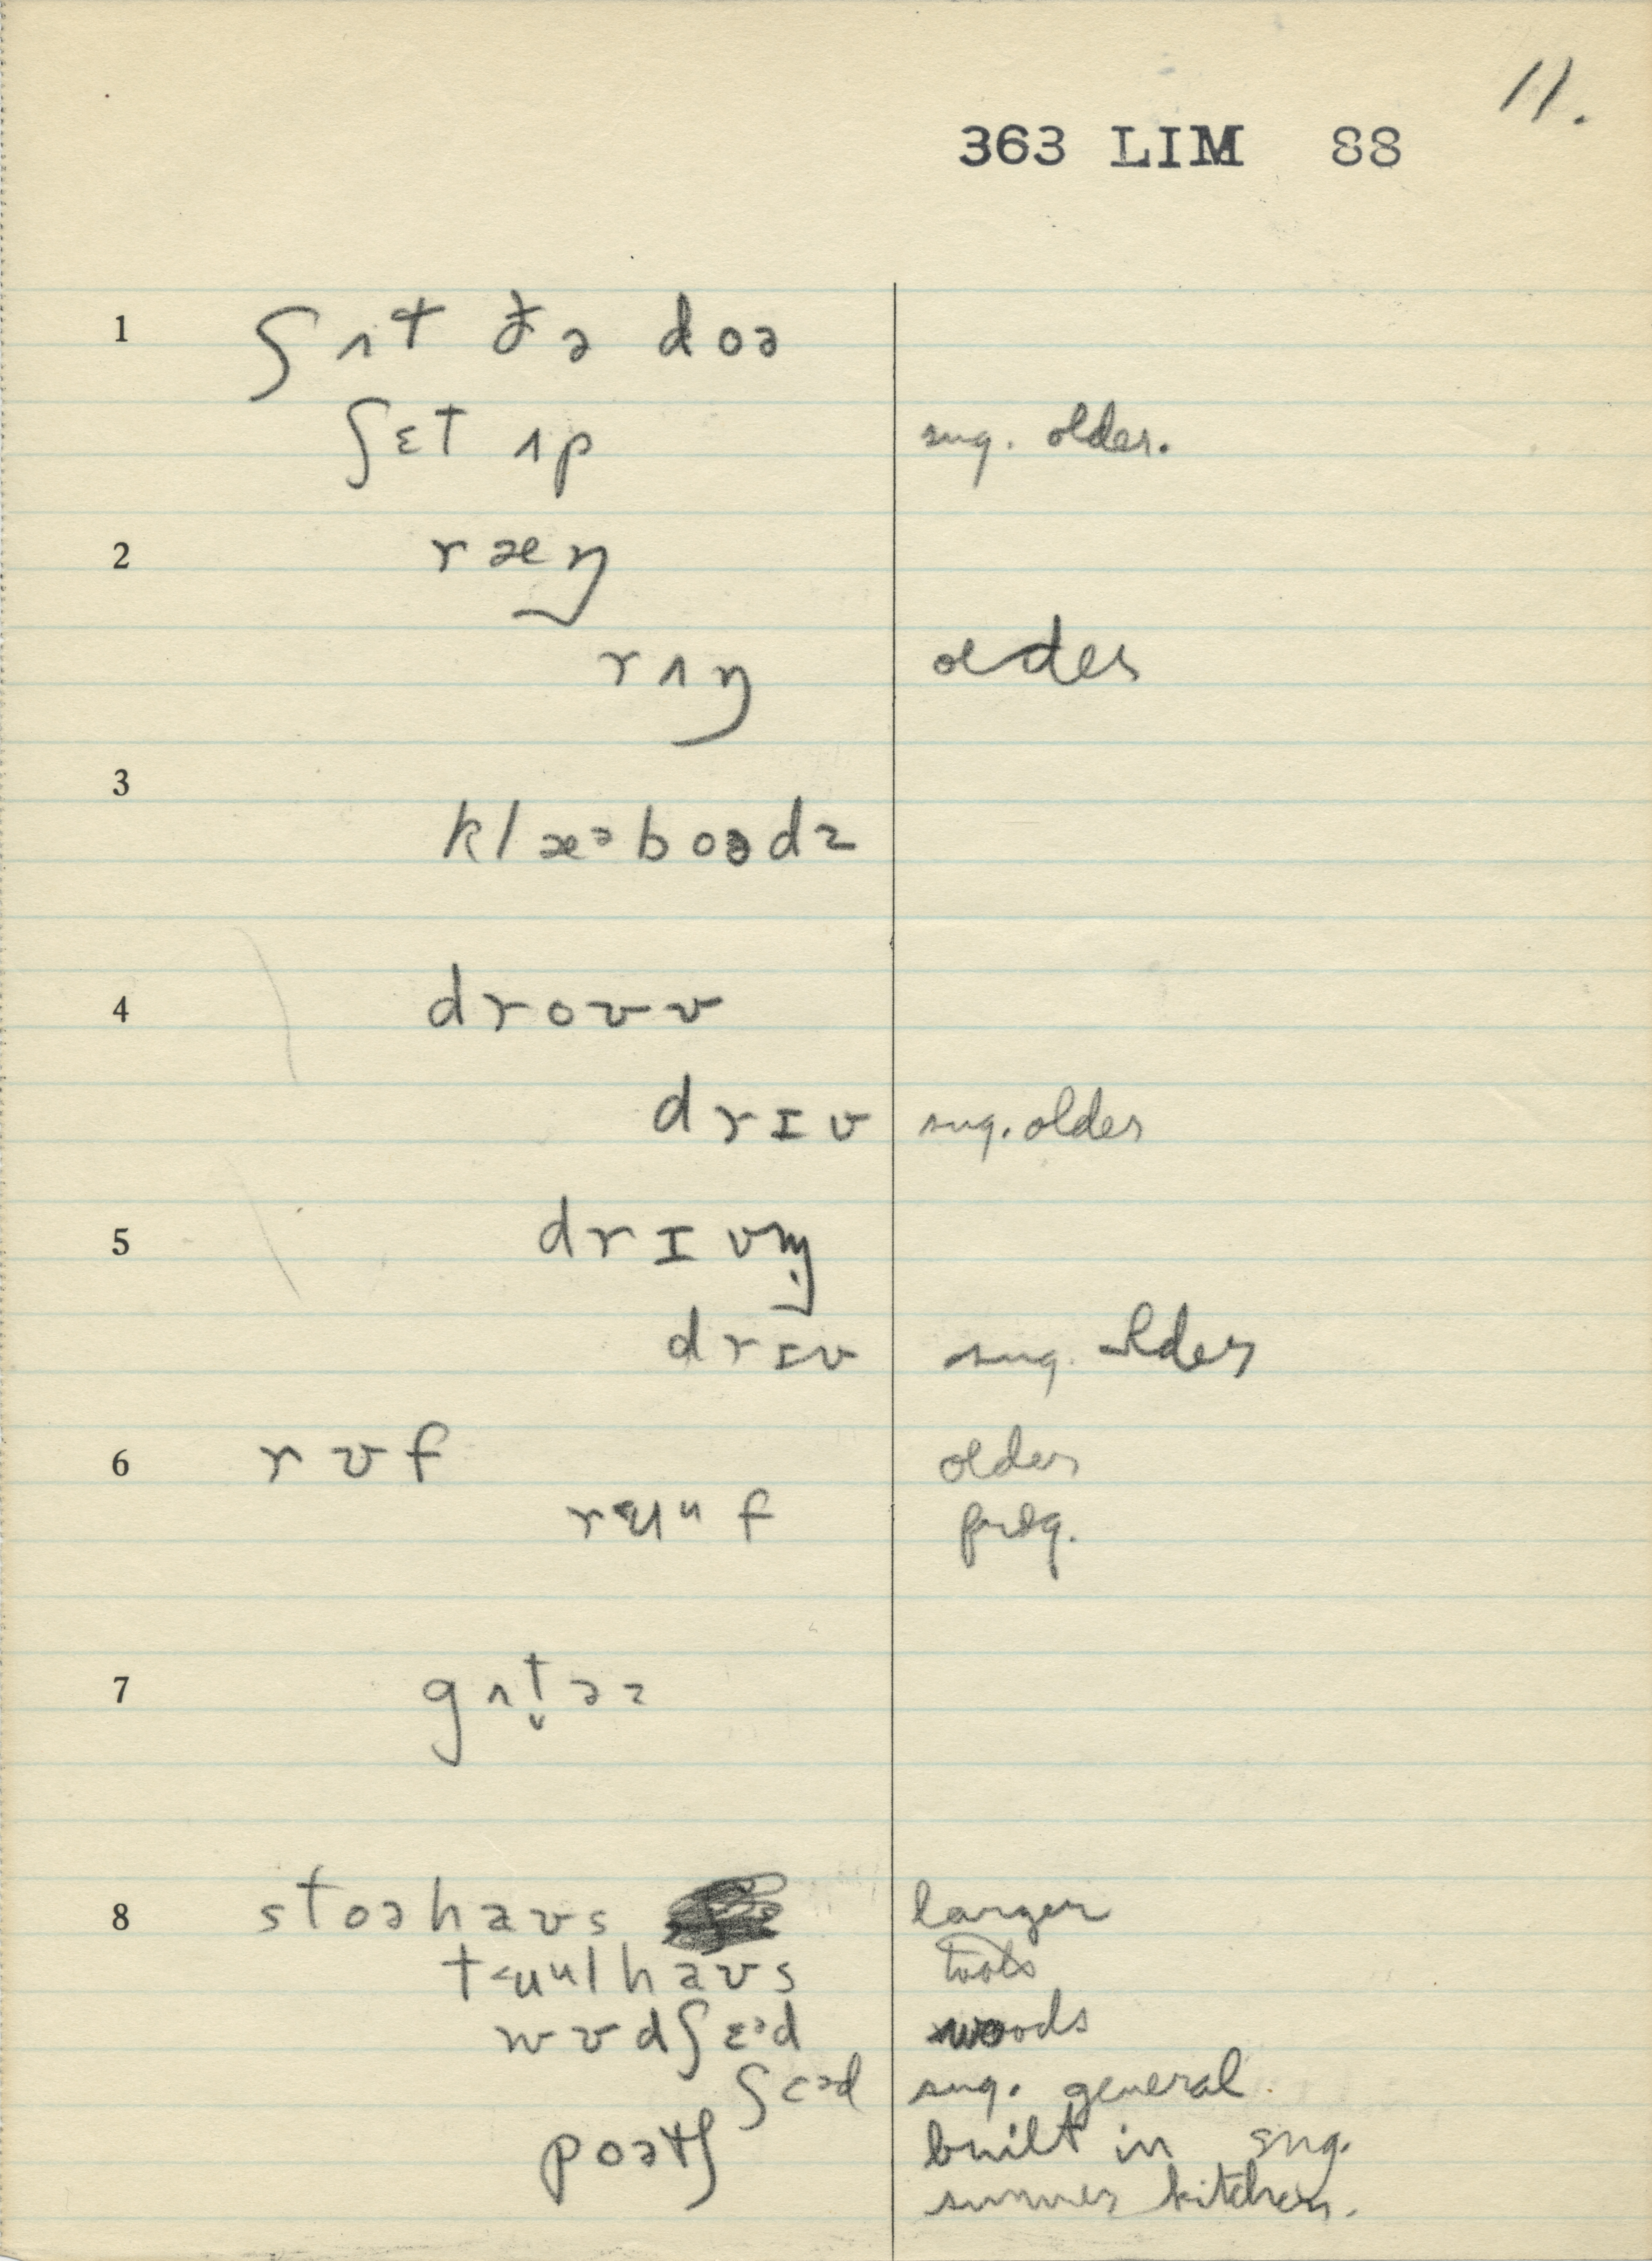 11.
363 LIM 88
1 ʃʌt ðə doə
ʃɛt ʌp sug. older.
2 ræŋ
rʌŋ older
3
klæᵊboədz
4 droʊv
drɪv sug. older
5 drɪvn̩
drɪv sug. older
6 rʊf older
rʉᵘf freq.
7 gʌt̬əz
8 stoəhaʊs larger
tʉᵘlhaʊs tools
wʊdʃɛᵊd woods
ʃɛᵊd sug. general
poətʃ built in sug.
summer kitchen.